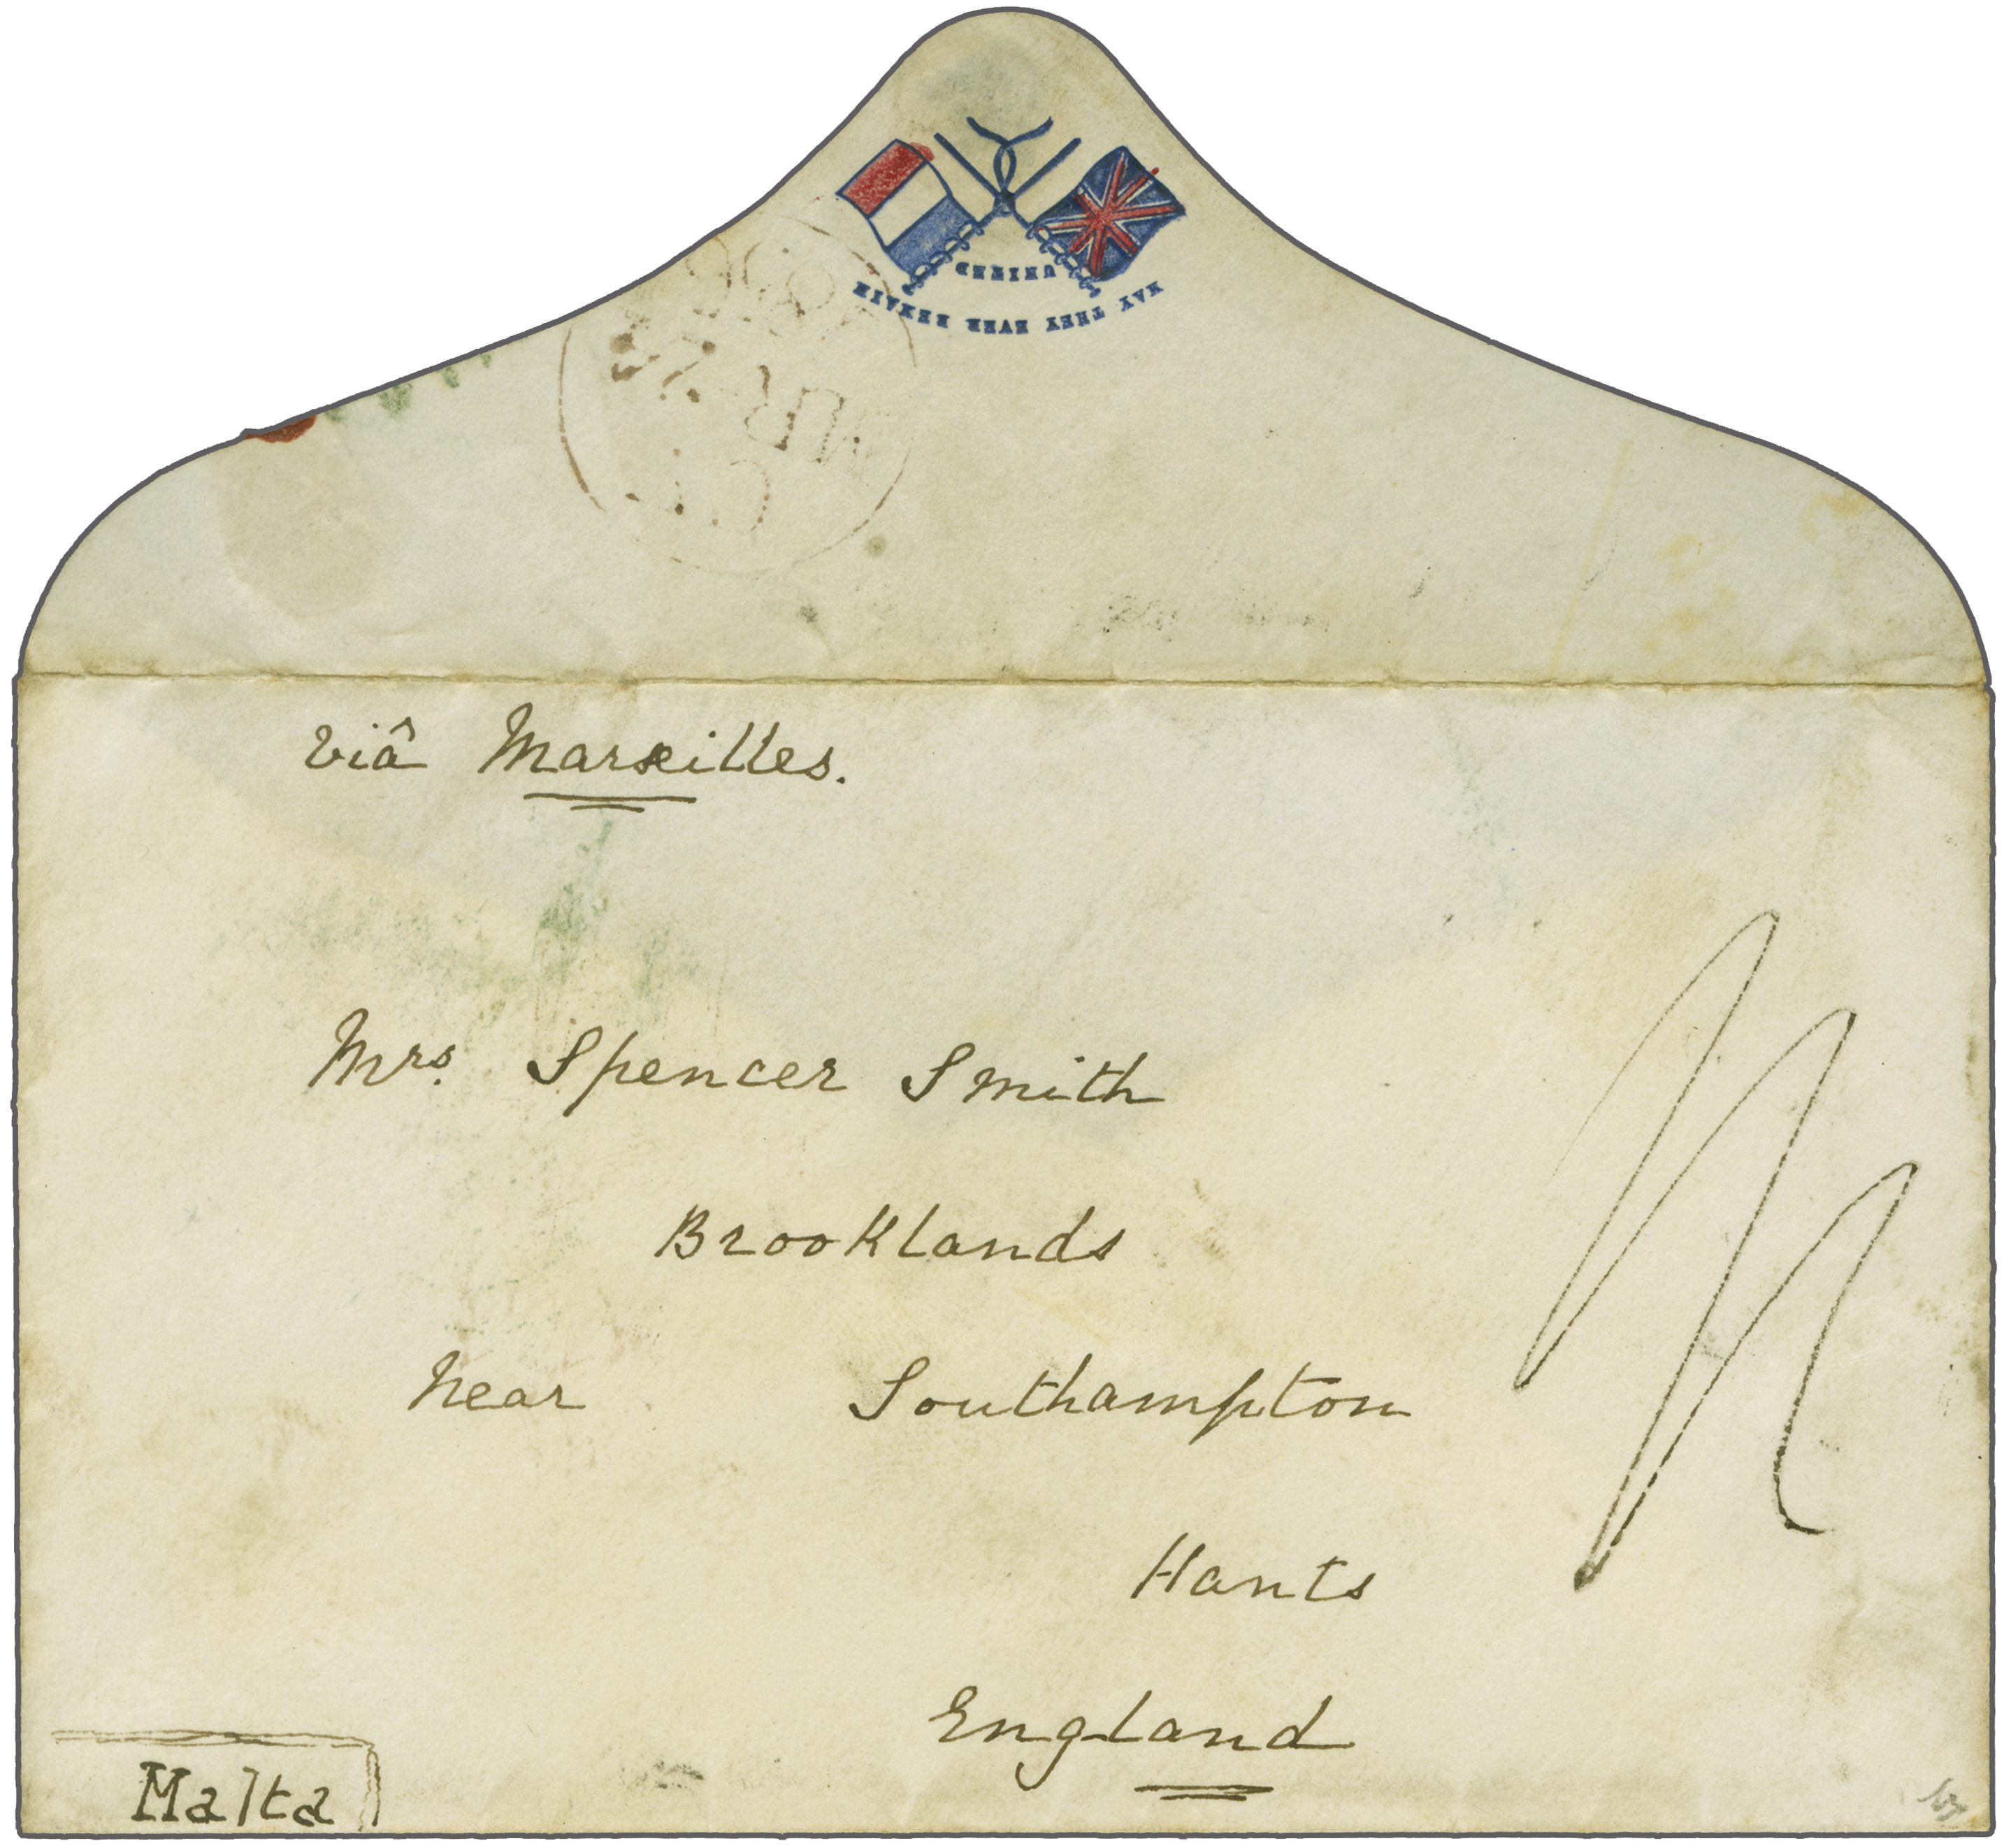 MAY THEY EVER REMAIN
UNITED
viâ Marseilles.
Mrs. Spencer Smith
Brooklands
near Southampton
Hants
England
Malta